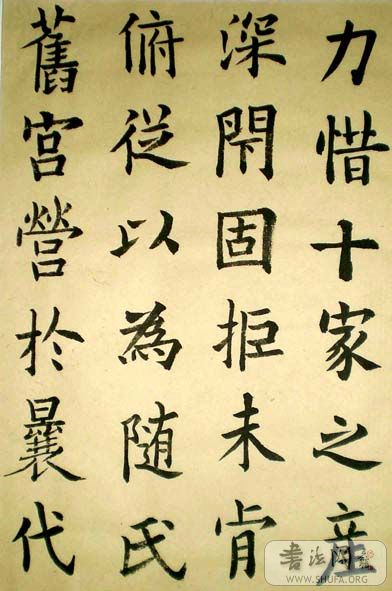 力惜十家之産
深閇固拒未肯
俯従以為随氏
舊宮營於曩代
WWW.SHUFA.ORG